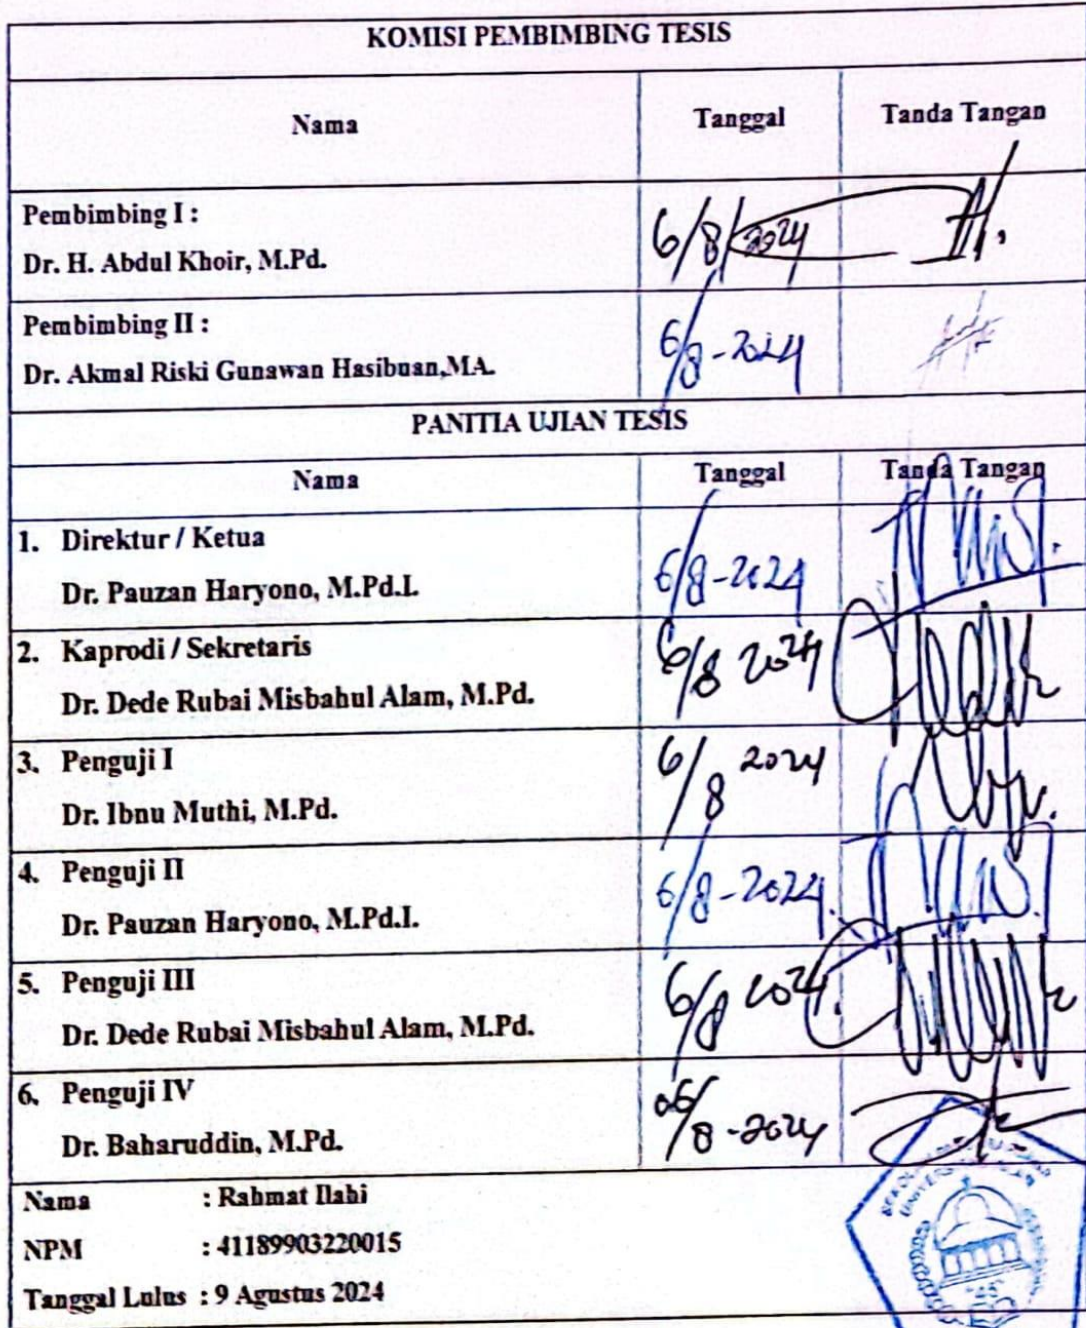 KOMISI PEMBIMBING TESIS
Nama Tanggal Tanda Tangan
Pembimbing I :
Dr. H. Abdul Khoir, M.Pd.
6/8/2024
Pembimbing II :
Dr. Akmal Riski Gunawan Hasibuan,MA.
6/8-2024
PANITIA UJIAN TESIS
Nama Tanggal Tanda Tangan
1. Direktur / Ketua
Dr. Pauzan Haryono, M.Pd.I.
6/8-2024
2. Kaprodi / Sekretaris
Dr. Dede Rubai Misbahul Alam, M.Pd.
6/8 2024
3. Penguji I
Dr. Ibnu Muthi, M.Pd.
6/8 2024
4. Penguji II
Dr. Pauzan Haryono, M.Pd.I.
6/8-2024.
5. Penguji III
Dr. Dede Rubai Misbahul Alam, M.Pd.
6/8 2024.
6. Penguji IV
Dr. Baharuddin, M.Pd.
06/8-2024
Nama : Rahmat Ilahi
NPM : 41189903220015
Tanggal Lulus : 9 Agustus 2024